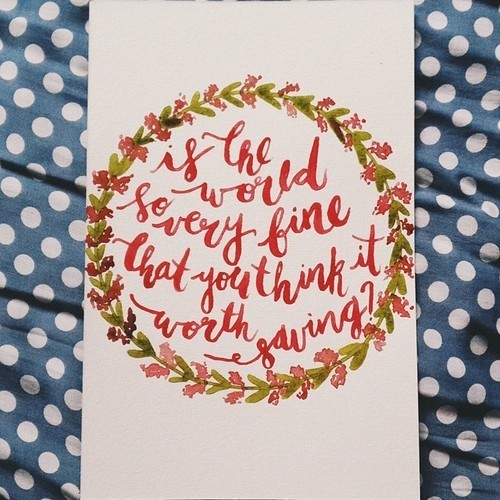 is the
so world
very fine
that you think it
worth saving?